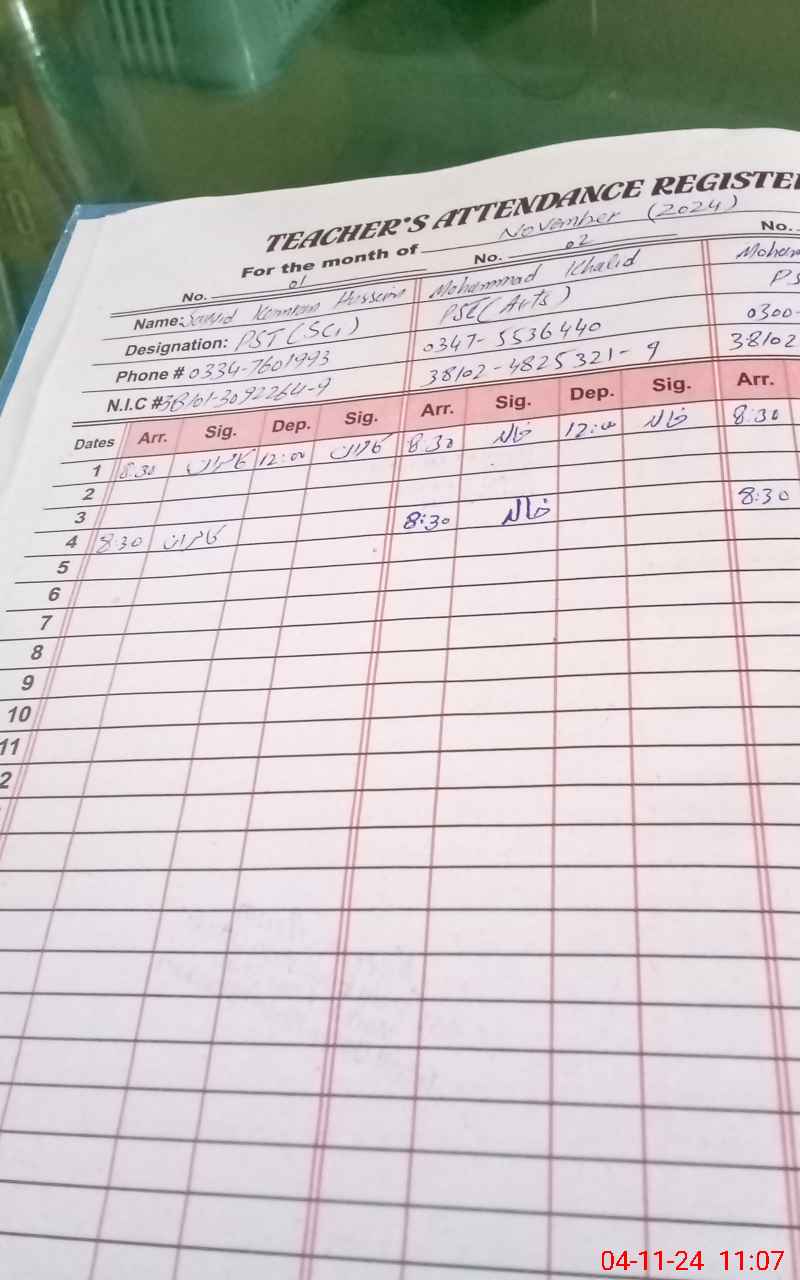 TEACHER'S ATTENDANCE REGISTE
For the month of November (2024)
No. 01 No. 02 No.
Name: Hussain Mohammad Khalid Moham
Designation: PST (Sci) PST (Arts) PS
Phone # 0334-7601993 0347-5536440 0300-
N.I.C # 38101-3092264-9 38102-4825321-9 38102
Dates Arr. Sig. Dep. Sig. Arr. Sig. Dep. Sig. Arr.
1 8:30 کامران 12:00 کامران 8:30 خالد 12:00 خالد 8:30
2
3
4 8:30 کامران 8:30 خالد 8:30
5
6
7
8
9
10
11
2
04-11-24 11:07